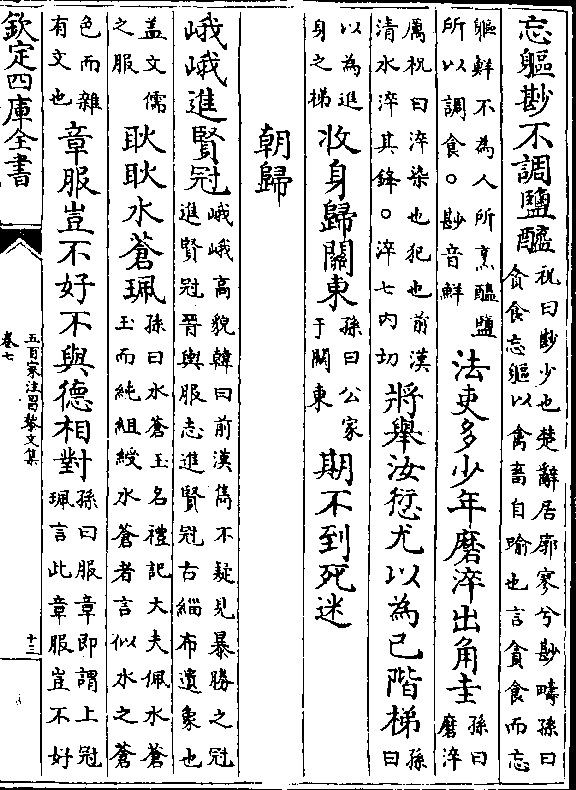 忘軀尟不調鹽醯祝曰尟少也楚辭居廓寥兮尟疇孫曰
貪食忘軀以禽畜自喻也言貪食而忘
軀鮮不為人所烹醯鹽
所以調食○尟音鮮法吏多少年磨淬出角圭孫曰
磨淬
厲祝曰淬染也犯也前漢
清水淬其鋒○淬七内切將舉汝愆尤以為己階梯孫
曰
以為進
身之梯收身歸關東孫曰公家
于關東期不到死迷
朝歸
峨峨進賢冠峨峨高貌韓曰前漢雋不疑見暴勝之冠
進賢冠晉輿服志進賢冠古緇布遺象也
蓋文儒
之服耿耿水蒼珮孫曰水蒼玉名禮記大夫佩水蒼
玉而純組綬水蒼者言似水之蒼
色而雜
有文也章服豈不好不與德相對孫曰服章即謂上冠
珮言此章服豈不好
欽定四庫全書
五百家注昌黎文集
卷七
十三